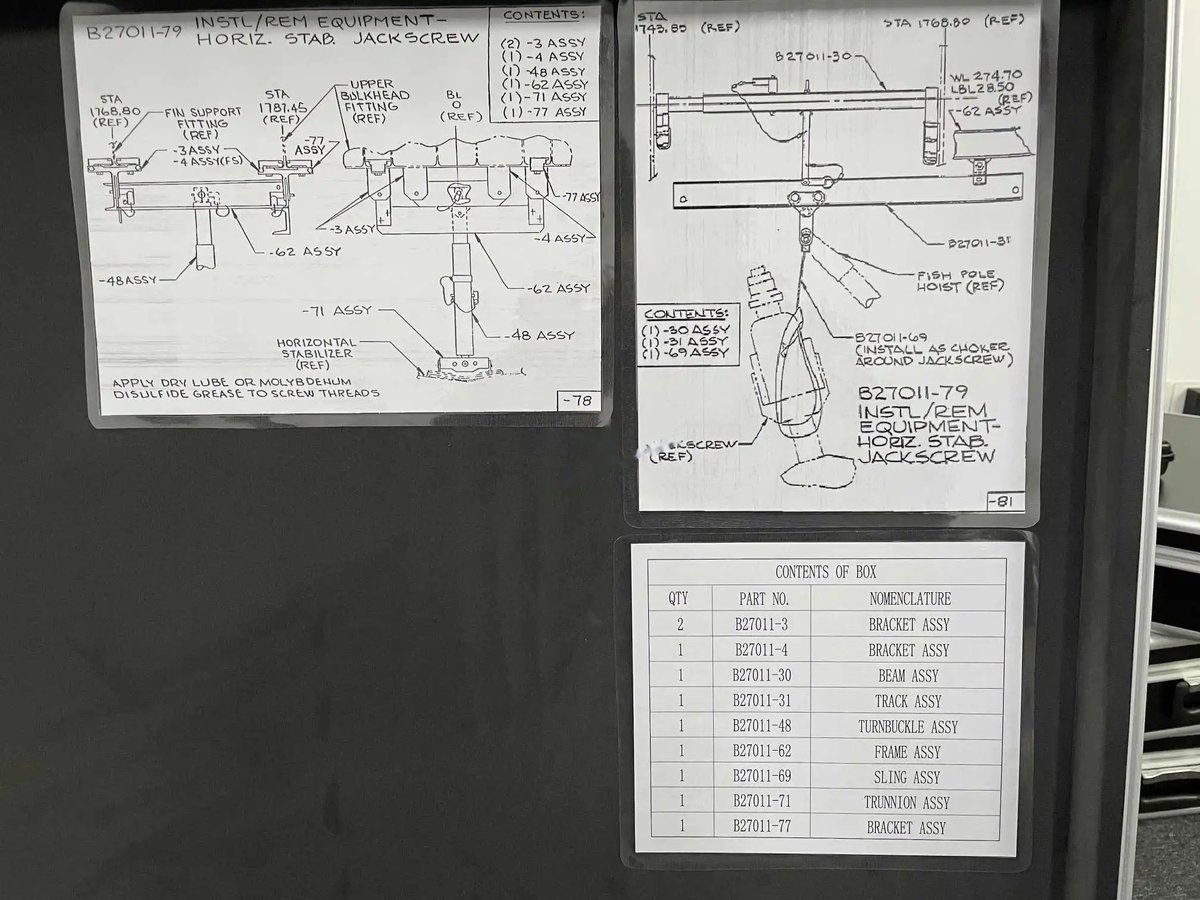 B27011-79
INSTL/REM EQUIPMENT-
HORIZ. STAB. JACKSCREW
CONTENTS:
(2) -3 ASSY
(1) -4 ASSY
(1) -48 ASSY
(1) -62 ASSY
(1) -71 ASSY
(1) -77 ASSY
STA
1768.80
(REF)
FIN SUPPORT
FITTING
(REF)
STA
1787.45
(REF)
UPPER
BULKHEAD
FITTING
(REF)
BL
0
(REF)
-3 ASSY
-4 ASSY(FS)
-77
ASSY
-77 ASSY
-3 ASSY
-4 ASSY
-62 ASSY
-48 ASSY
-62 ASSY
-71 ASSY
-48 ASSY
HORIZONTAL
STABILIZER
(REF)
APPLY DRY LUBE OR MOLYBDENUM
DISULFIDE GREASE TO SCREW THREADS
-78
STA
1743.85 (REF)
STA 1768.80 (REF)
B27011-30
WL 274.70
LBL 28.50
(REF)
-62 ASSY
B27011-31
FISH POLE
HOIST (REF)
CONTENTS:
(1) -30 ASSY
(1) -31 ASSY
(1) -69 ASSY
B27011-69
(INSTALL AS CHOKER
AROUND JACKSCREW)
B27011-79
INSTL/REM
EQUIPMENT-
HORIZ. STAB.
JACKSCREW
(REF)
-81
CONTENTS OF BOX
QTY PART NO. NOMENCLATURE
2 B27011-3 BRACKET ASSY
1 B27011-4 BRACKET ASSY
1 B27011-30 BEAM ASSY
1 B27011-31 TRACK ASSY
1 B27011-48 TURNBUCKLE ASSY
1 B27011-62 FRAME ASSY
1 B27011-69 SLING ASSY
1 B27011-71 TRUNNION ASSY
1 B27011-77 BRACKET ASSY